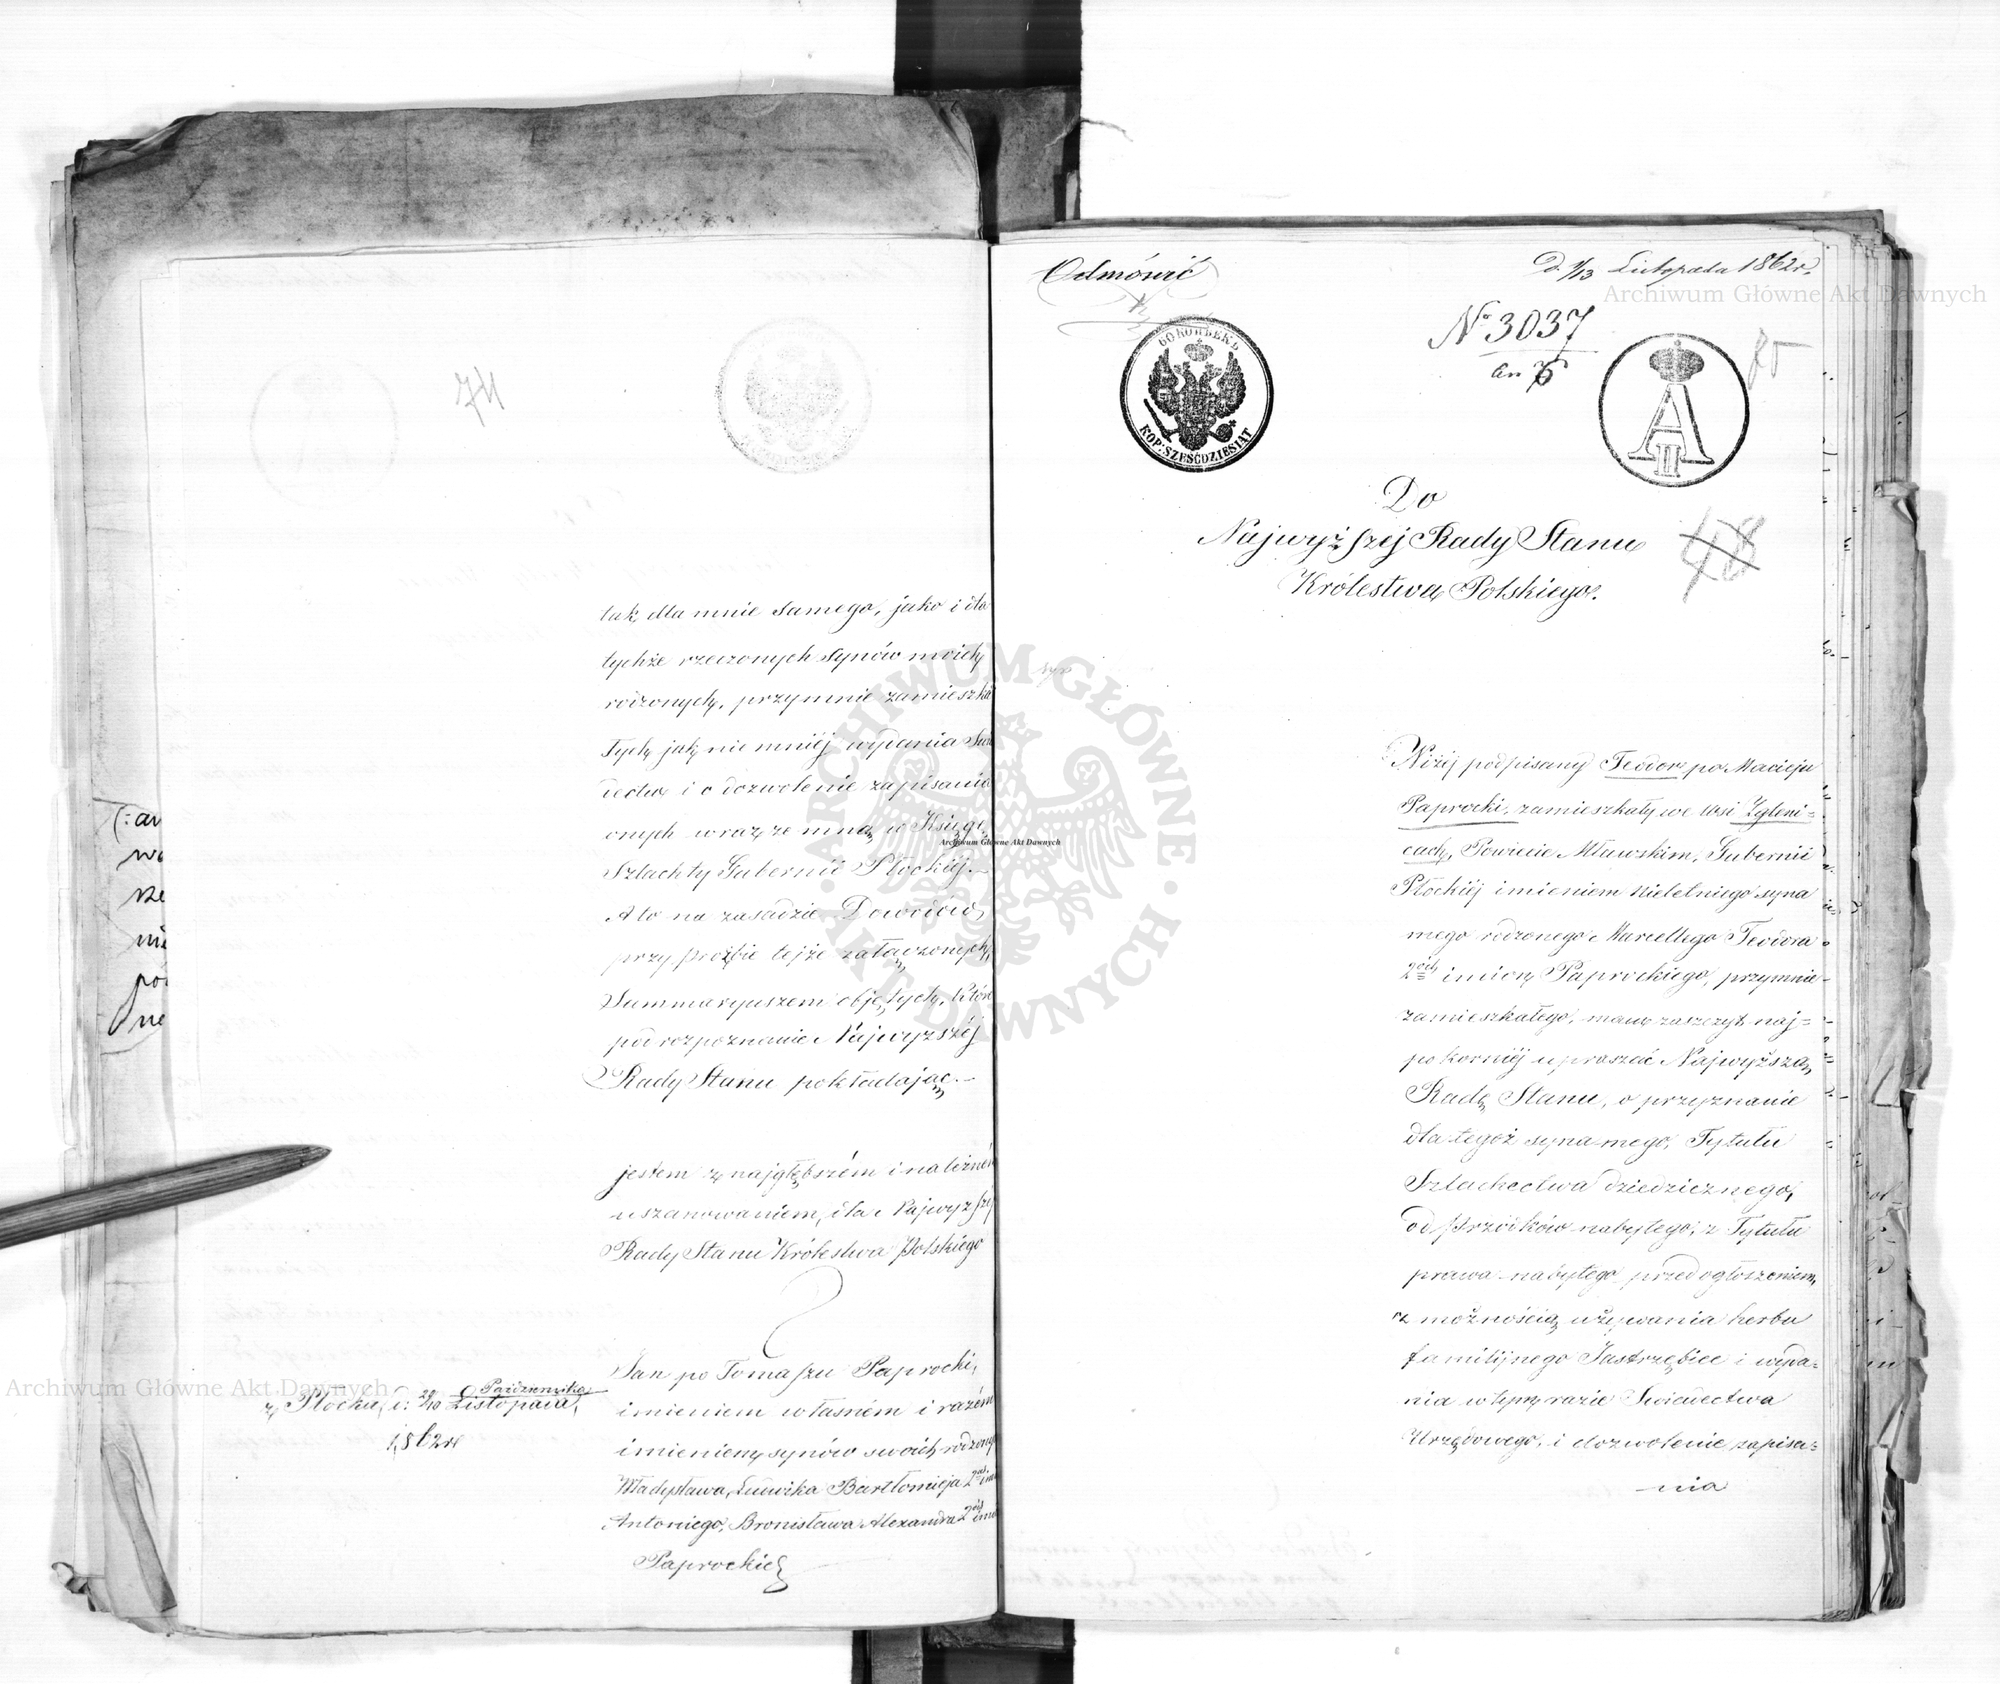 74
tak dla mnie samego, jako i dla
tychże rzeczonych synów moich
rodzonych, przymnie zamieszka
łych jak nie mniéj wydania Świa
dectw i o dozwolenie zapisania
onych wraz ze mną w Księgi
Szlachty Gubernii Płockiéj.—
A to na zasadzie Dowodów
przy prośbie tejże załączonych,
Summaryuszem objętych, które
pod rozpoznanie Najwyższéj
Rady Stanu pokładając.—
jestem z najgłębszém i należném
uszanowaniem, dla Najwyższéj
Rady Stanu Królestwa Polskiego
Jan po Tomaszu Paprocki,
imieniem własném i razém
imieniem synów swoich rodzonych
Władysława, Ludwika Bartłomieja 2ch im
Antoniego, Bronisława Alexandra 2ch imi
Paprockich
z Płocka, d: 29/10 Października/Listopada,
1862r
(: an
wa
sze
nie
pó
ne
Odmówić
D. 1/13 Listopada 1862r.
No 3037
85
60 КОПѢЕКЪ
KOP: SZEŚĆDZIESIĄT
A II
Do
Najwyższej Rady Stanu
Królestwa Polskiego.
48
Niżéj podpisany Teodor po Macieju
Paprocki, zamieszkały we wsi Zgleni-
cach, Powiecie Mławskim, Gubernii
Płockiéj imieniem nieletniego syna
mego rodzonego Marcellego Teodora
2ch imion Paprockiego, przymnie
zamieszkałego, mam zaszczyt naj=
pokorniéj upraszać Najwyższą
Radę Stanu, o przyznanie
dla tegoż syna mego, Tytułu
Szlachectwa dziedzicznego,
od przodków nabytego, z Tytułu
prawa nabytego przed ogłoszeniem,
z możnością używania herbu
familijnego Jastrzębiec i wyda-
nia w tym razie Świadectwa
Urzędowego, i dozwolenie zapisa=
nia
Archiwum Główne Akt Dawnych
Archiwum Główne Akt Dawnych
Archiwum Główne Akt Dawnych
ARCHIWUM GŁÓWNE AKT DAWNYCH